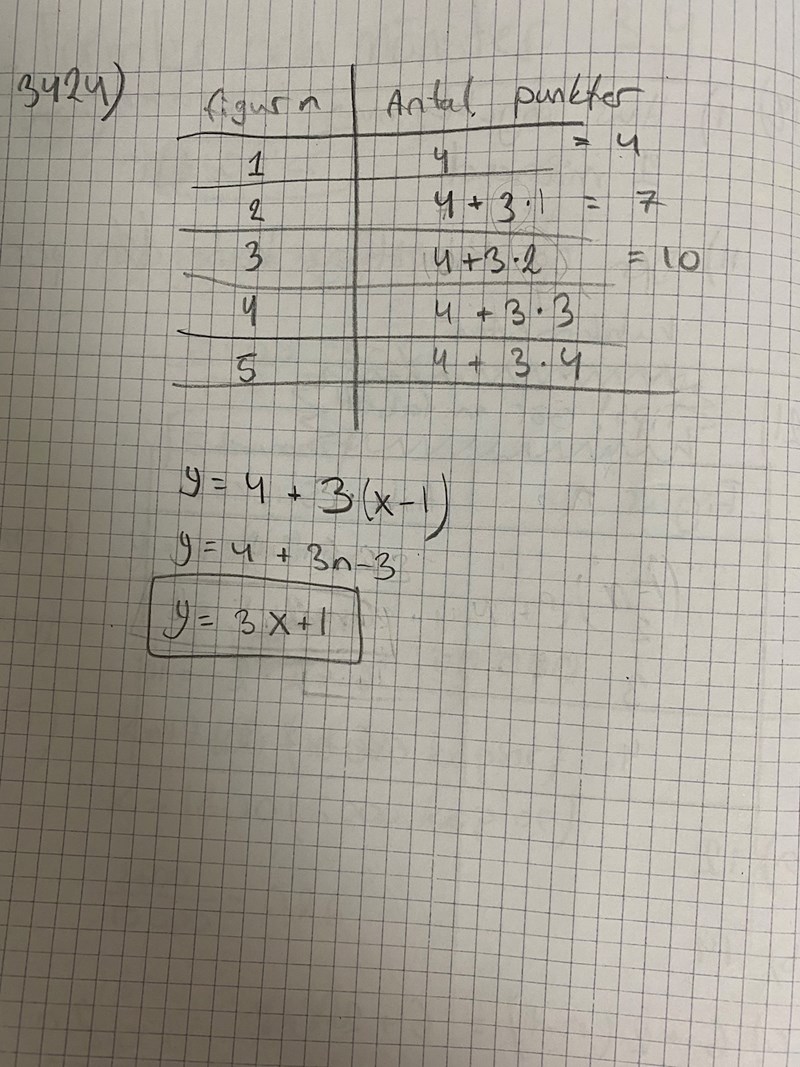 3424)
figur n Antal punkter
1 4 = 4
2 4 + 3·1 = 7
3 4+3·2 = 10
4 4 + 3·3
5 4 + 3·4
y = 4 + 3(x-1)
y = 4 + 3n-3
y = 3x+1